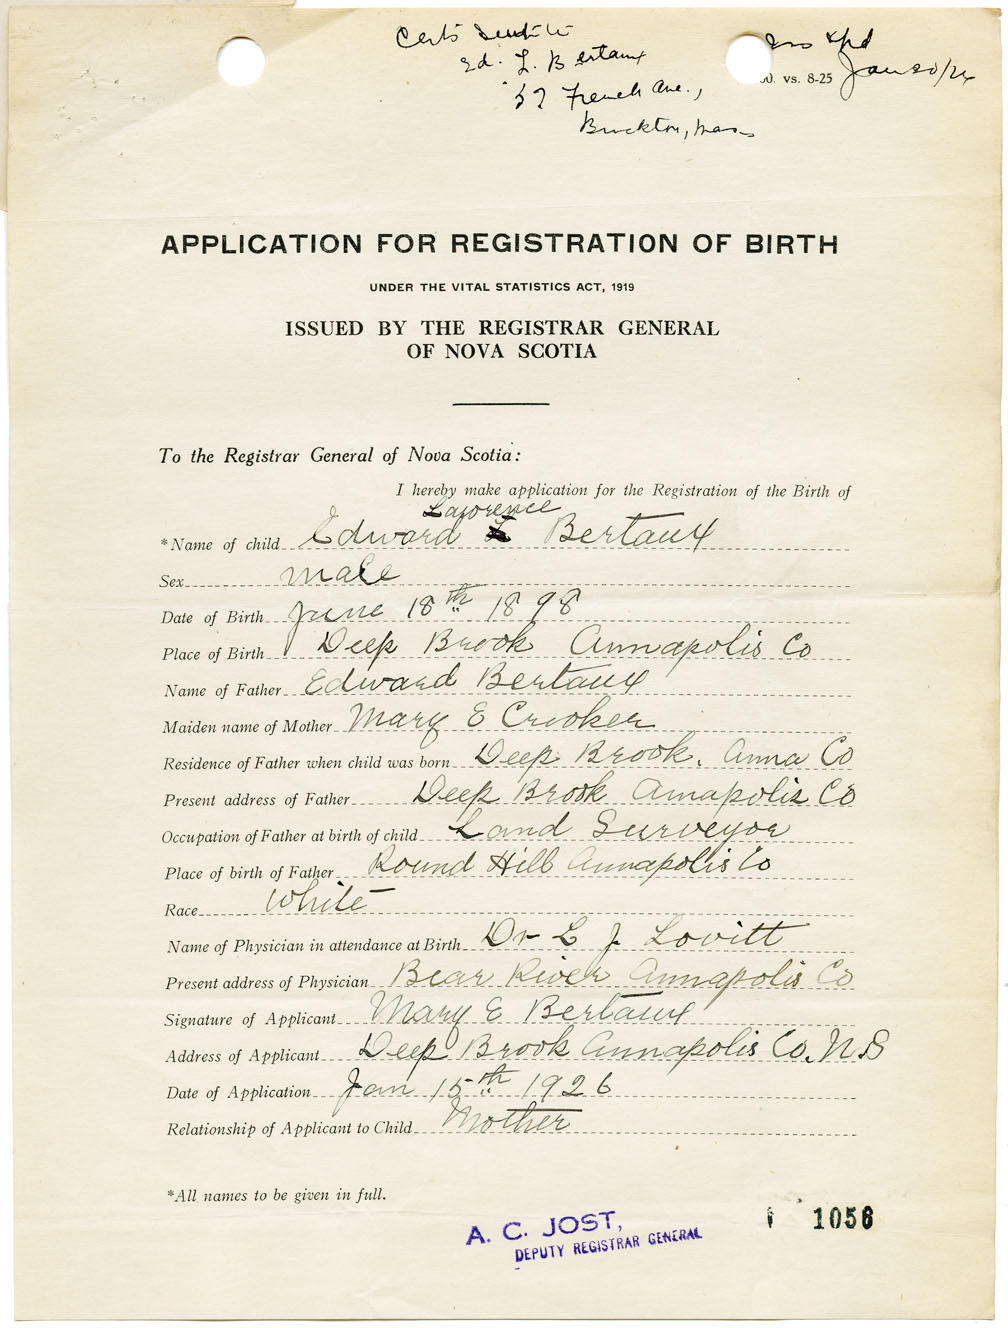 Ed. L. Bertaux
57 French Ave.,
Brockton, Mass
vs. 8-25 Jan 20/26
APPLICATION FOR REGISTRATION OF BIRTH
UNDER THE VITAL STATISTICS ACT, 1919
ISSUED BY THE REGISTRAR GENERAL
OF NOVA SCOTIA
To the Registrar General of Nova Scotia:
I hereby make application for the Registration of the Birth of
Lawrence
*Name of child Edward L Bertaux
Sex male
Date of Birth June 18th 1898
Place of Birth Deep Brook Annapolis Co
Name of Father Edward Bertaux
Maiden name of Mother Mary E Crooker
Residence of Father when child was born Deep Brook. Anna Co
Present address of Father Deep Brook Annapolis Co
Occupation of Father at birth of child Land Surveyor
Place of birth of Father Round Hill Annapolis Co
Race White
Name of Physician in attendance at Birth Dr L J. Lovitt
Present address of Physician Bear River Annapolis Co
Signature of Applicant Mary E Bertaux
Address of Applicant Deep Brook Annapolis Co. N.S
Date of Application Jan 15th 1926
Relationship of Applicant to Child Mother
*All names to be given in full.
1056
A. C. JOST,
DEPUTY REGISTRAR GENERAL